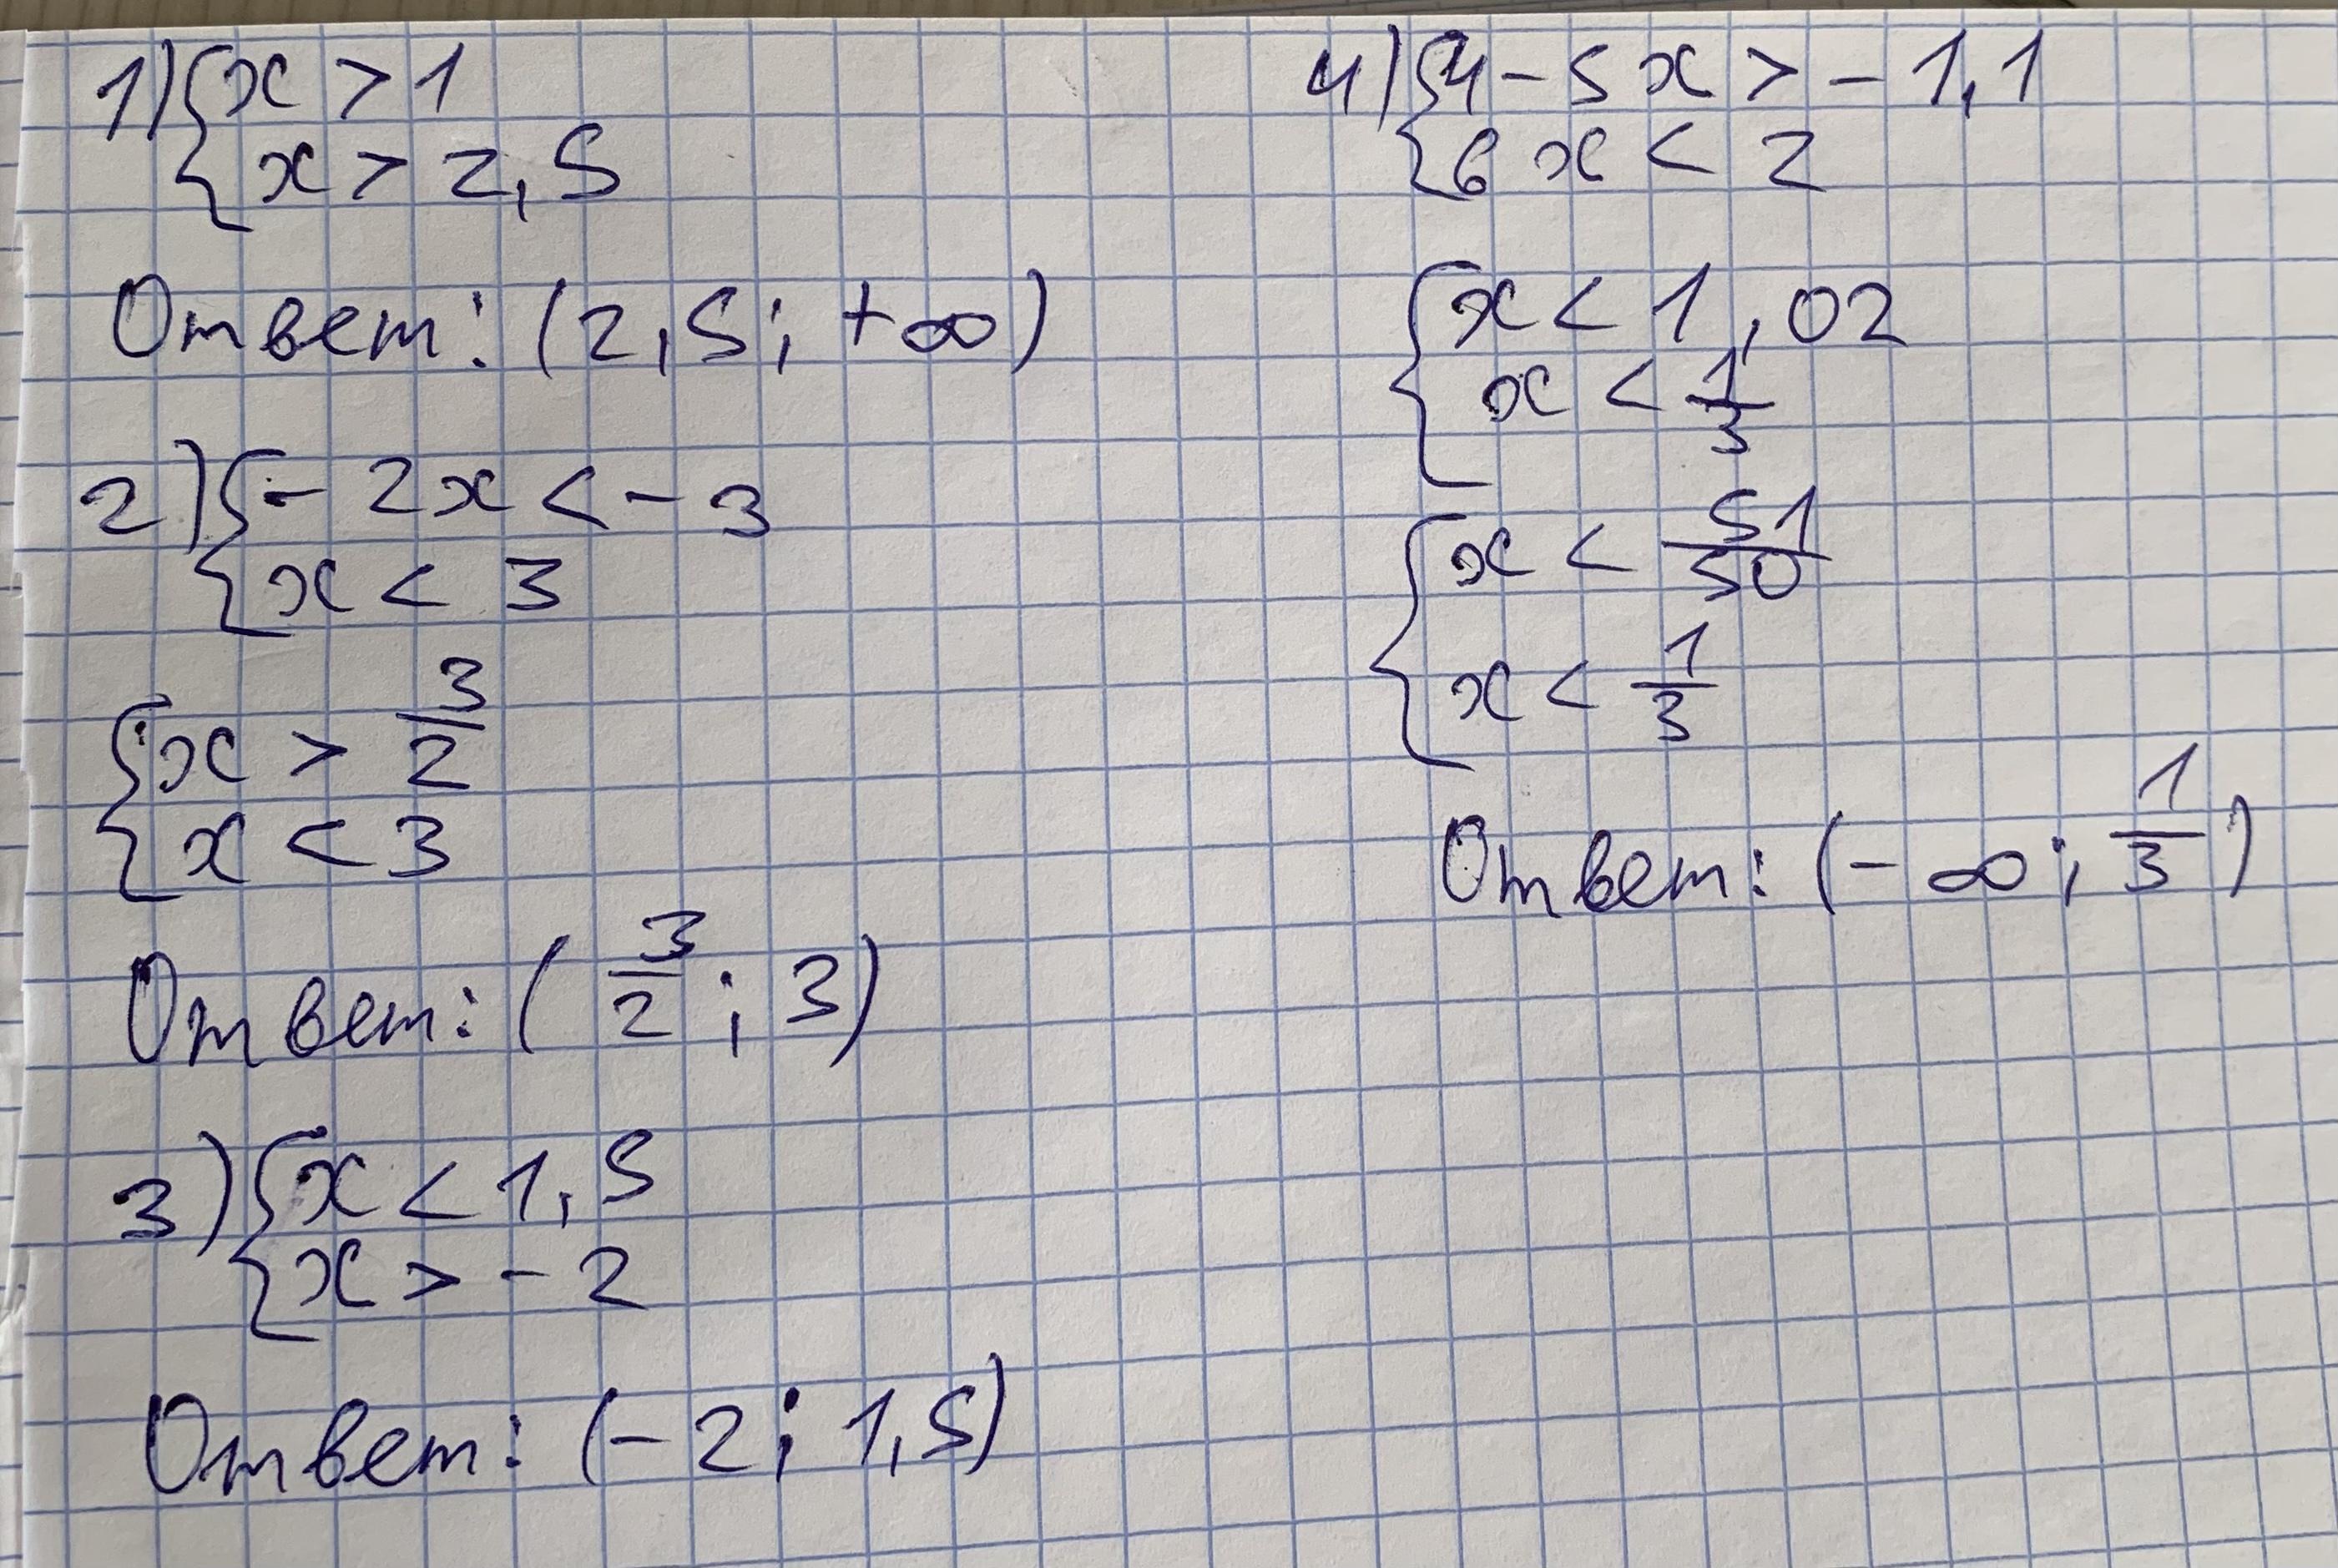 1) { x > 1
{ x > 2,5
Ответ: (2,5; +∞)
2) { - 2x < - 3
{ x < 3
{ x > 3/2
{ x < 3
Ответ: (3/2; 3)
3) { x < 1,5
{ x > - 2
Ответ: (- 2; 1,5)
4) { 4 - 5x > - 1,1
{ 6x < 2
{ x < 1,02
{ x < 1/3
{ x < 51/50
{ x < 1/3
Ответ: (- ∞; 1/3)